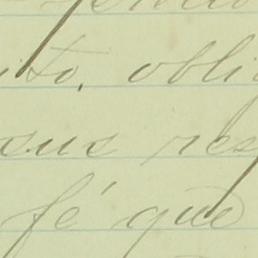 ito, obli
sus res
fé que